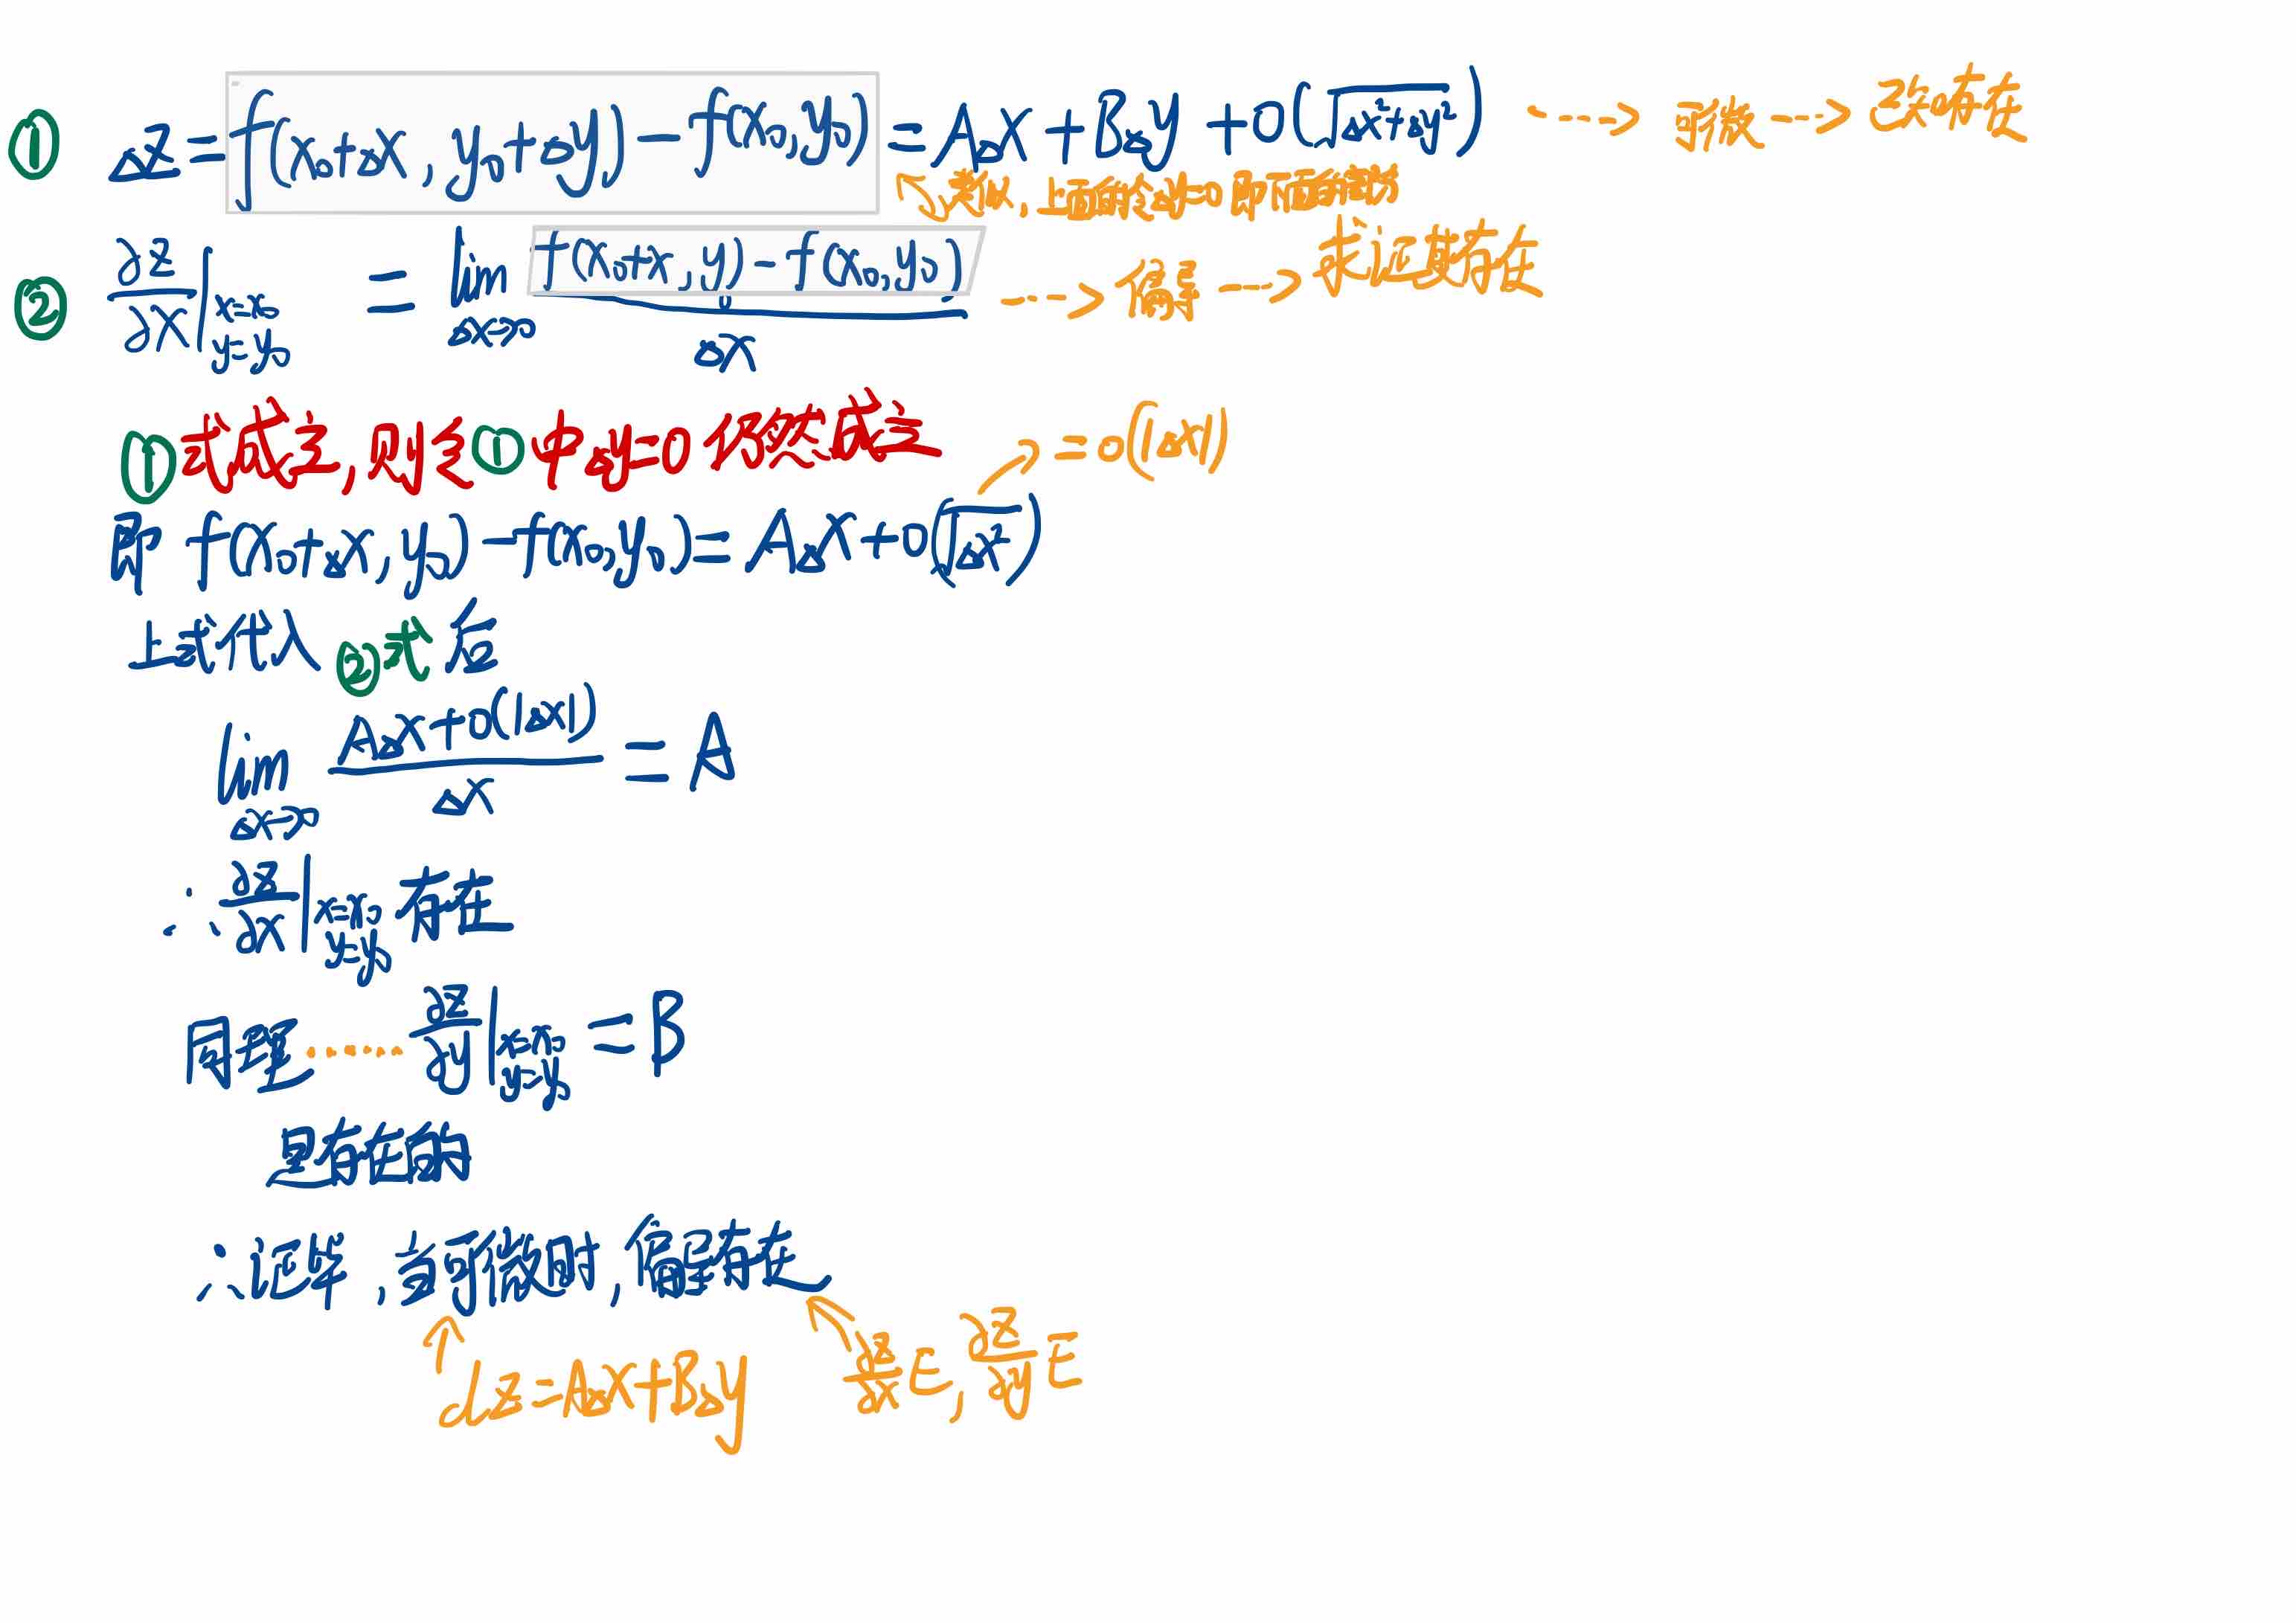 ① △Z = f(x₀+△x, y₀+△y) - f(x₀, y₀) = A△x + B△y + o(√△x²+△y²) ----> 可微 ---> 已知存在
类似, 上面的令△y=0 即下面的部分
② ∂z/∂x |x=x₀ y=y₀ = lim △x→0 f(x₀+x, y₀) - f(x₀, y₀) / △x ---> 偏导 ---> 求证其存在
①式成立, 则令①中△y=0 仍然成立
= o(|△x|)
即 f(x₀+△x, y₀) - f(x₀, y₀) = A△x + o(√△x²)
上式代入②式后
lim △x→0 A△x+o(|△x|) / △x = A
∴ ∂z/∂x |x=x₀ y=y₀ 存在
同理 ······ ∂z/∂y |x=x₀ y=y₀ = B
是存在的
∴ 证毕, 当可微时, 偏导存在
dz = A△x + B△y
∂z/∂x E, ∂z/∂y E